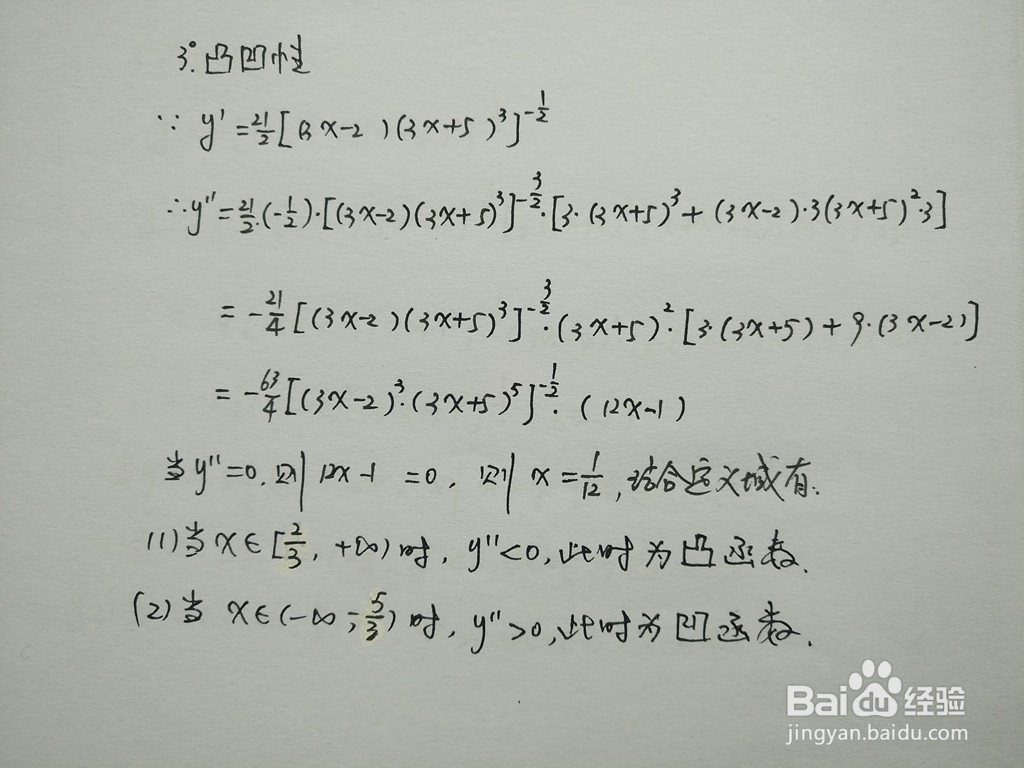 3°.凸凹性
∵ y'=21/2[(3x-2)(3x+5)³]^-1/2
∴y''=21/2·(-1/2)·[(3x-2)(3x+5)³]^-3/2·[3·(3x+5)³+(3x-2)·3(3x+5)²·3]
=-21/4[(3x-2)(3x+5)³]^-3/2·(3x+5)²·[3·(3x+5)+9·(3x-2)]
=-63/4[(3x-2)³·(3x+5)⁵]^-1/2·(12x-1)
当y''=0,则12x-1=0,则x=1/12,结合定义域有.
(1)当x∈[2/3,+∞)时,y''<0,此时为凸函数.
(2)当x∈(-∞,-5/3)时,y''>0,此时为凹函数.
Baidu经验
jingyan.baidu.com